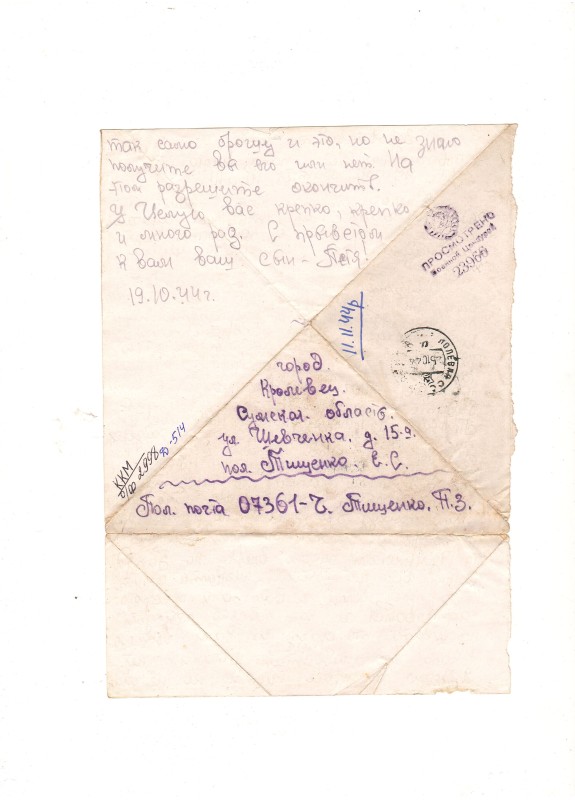 так само брошу и это, но не знаю
получите вы его или нет. На
этом разрешите окончить.
Целую вас крепко, крепко
и много раз. С привётом
к вам ваш сын - Петя.
19.10.44г.
ПРОСМОТРЕНО
Военной Цензурой
23966
11.11.44г
ПОЛЕВАЯ
город.
Кролевец.
Сумская. область.
ул Шевченка, д. 15-9.
пол. Тищенко. Е.С.
ККМ
2998
ф-514
Пол. почта 07361-Ч. Тищенко. П.З.